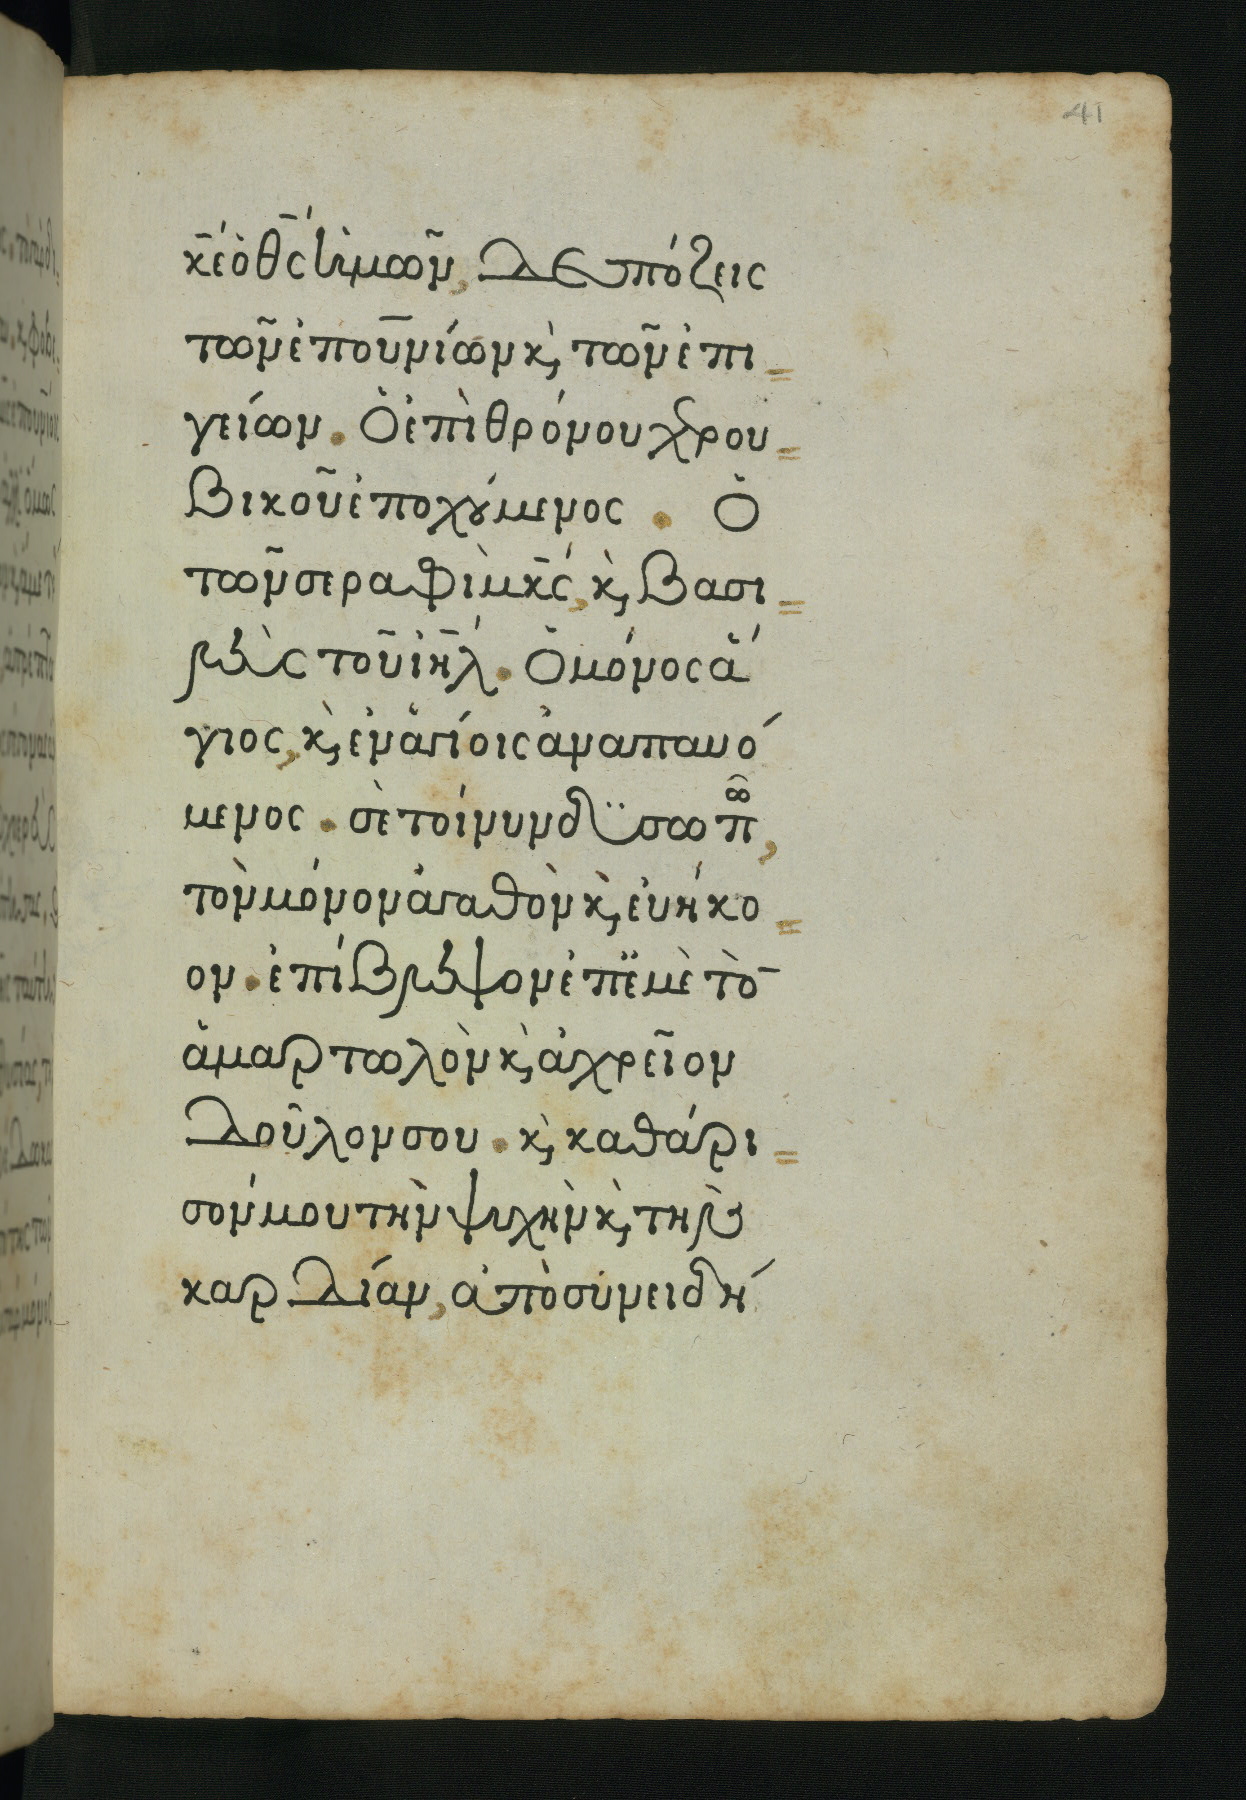 41
κ̅έ ὁ θ̅ς́ ἡμῶν, δεσπόζεις
τῶν ἐπου̅νίων κ̀, τῶν ἐπι=
γείων. Ὁ ἐπὶ θρόνου χ̅ρου=
βικοῦ ἐποχούμενος. Ὁ
τῶν σεραφὶμ κ̅ς́, κ̀, βασι=
λεὺς τοῦ ἰη̅λ́. Ὁ μόνος ἅ
γιος, κ̀, ἐν ἁγίοις ἀναπαυό
μενος. σὲ τοίνυν δυσωπῶ,
τὸν μόνον ἀγαθὸν κ̀, εὐήκο=
ον. ἐπίβλεψον ἐπ' ἐμὲ τὸ̅
ἁμαρτωλὸν κ̀, ἀχρεῖον
δοῦλον σου. κ̀, καθάρι=
σόν μου τὴν ψυχὴν κ̀, τὴν
καρδίαν, ἀπὸ συνειδή